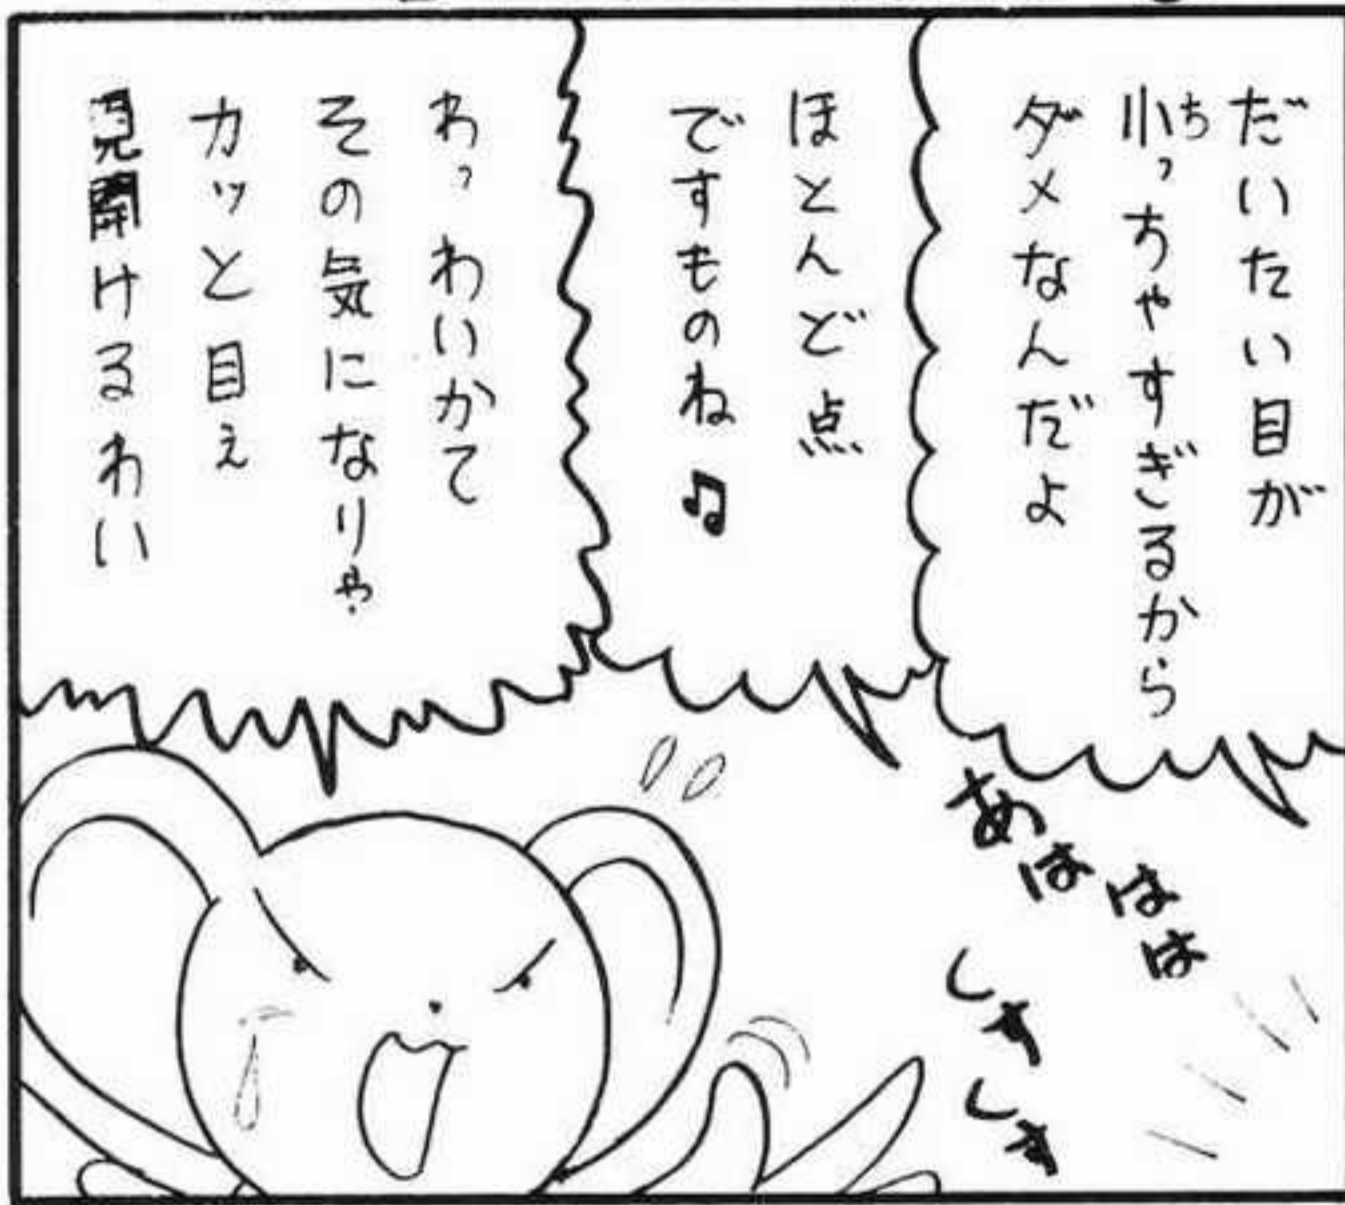 だいたい目が
小っちゃすぎるから
ち
ダメなんだよ
ほとんど点
ですものね♫
わっわいかて
その気になりゃ
カッと目ぇ
見開けるわい
あはは
はは